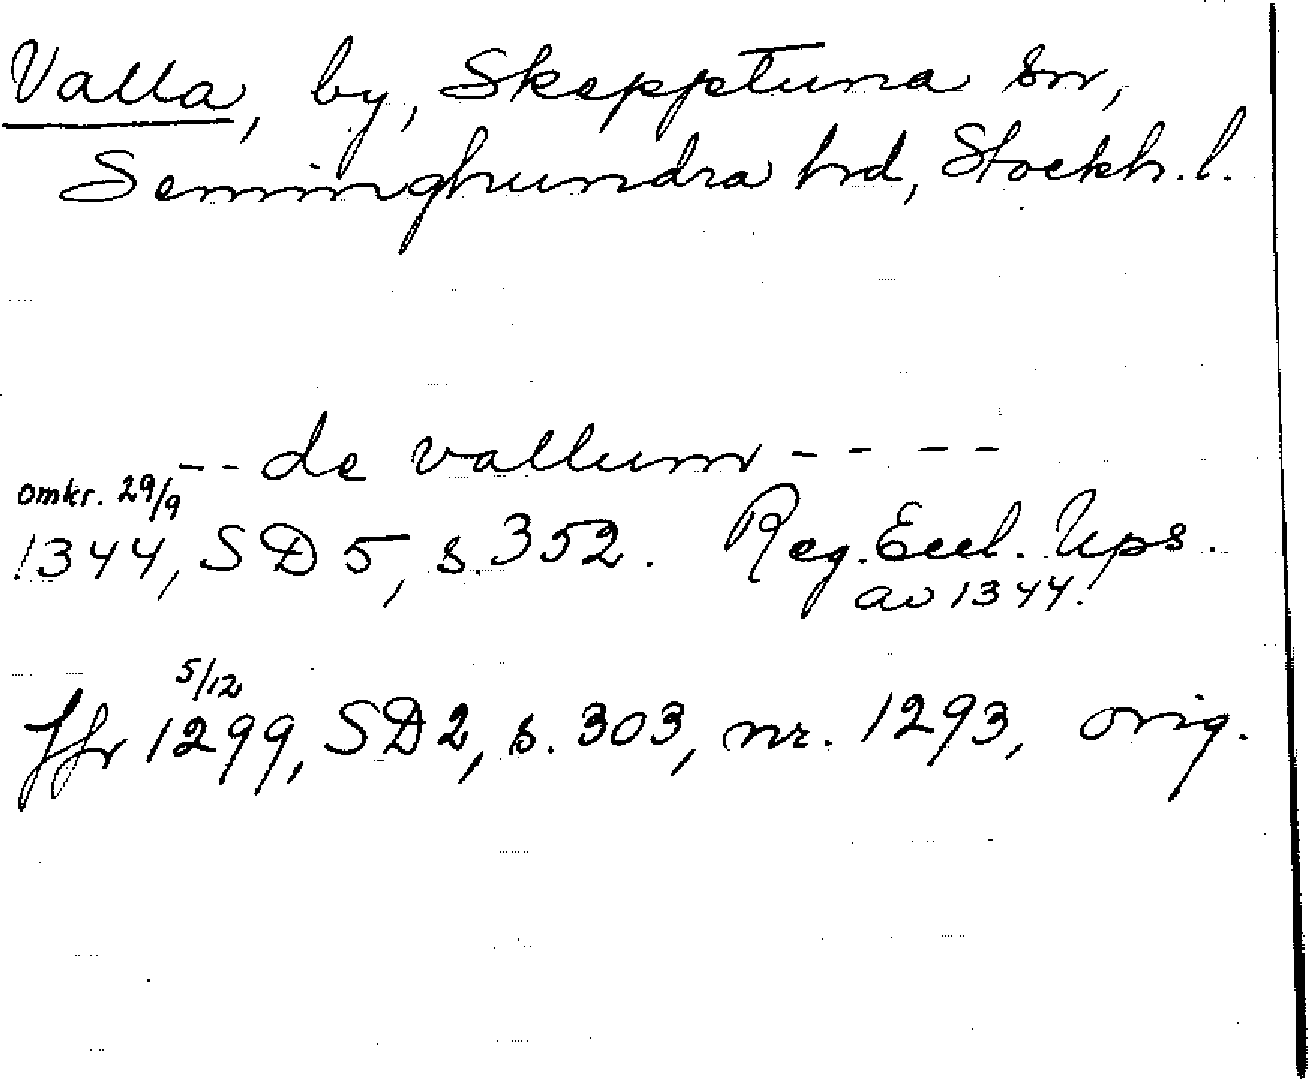 Valla, by, Skepptuna sn,
Seminghundra hd, Stockh. l.
-- de vallum ----
omkr. 29/9
1344, SD 5, s. 352. Reg. Eccl. Ups.
av 1344.
5/12
Jfr 1299, SD 2, s. 303, nr. 1293, orig.